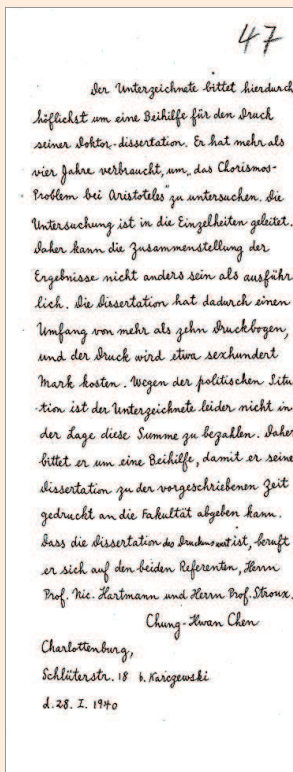 47
Der Unterzeichnete bittet hierdurch
höflichst um eine Beihilfe für den Druck
seiner Doktor-dissertation. Er hat mehr als
vier Jahre verbraucht, um „das Chorismos-
Problem bei Aristoteles“ zu untersuchen. Die
Untersuchung ist in die Einzelheiten geleitet.
Daher kann die Zusammenstellung der
Ergebnisse nicht anders sein als ausführ
lich. Die Dissertation hat dadurch einen
Umfang von mehr als zehn Druckbogen,
und der Druck wird etwa sexhundert
Mark kosten. Wegen der politischen Situ
-tion ist der Unterzeichnete leider nicht in
der Lage diese Summe zu bezahlen. Daher
bittet er um eine Beihilfe, damit er seine
Dissertation zu der vorgeschriebenen Zeit
gedruckt an die Fakultät abgeben kann.
Dass die Dissertation des Druckens wert ist, beruft
er sich auf den beiden Referenten, Herrn
Prof. Nic. Hartmann und Herrn Prof. Stroux.
Chung-Hwan Chen
Charlottenburg,
Schlüterstr. 18 b. Karczewski
d. 28. I. 1940